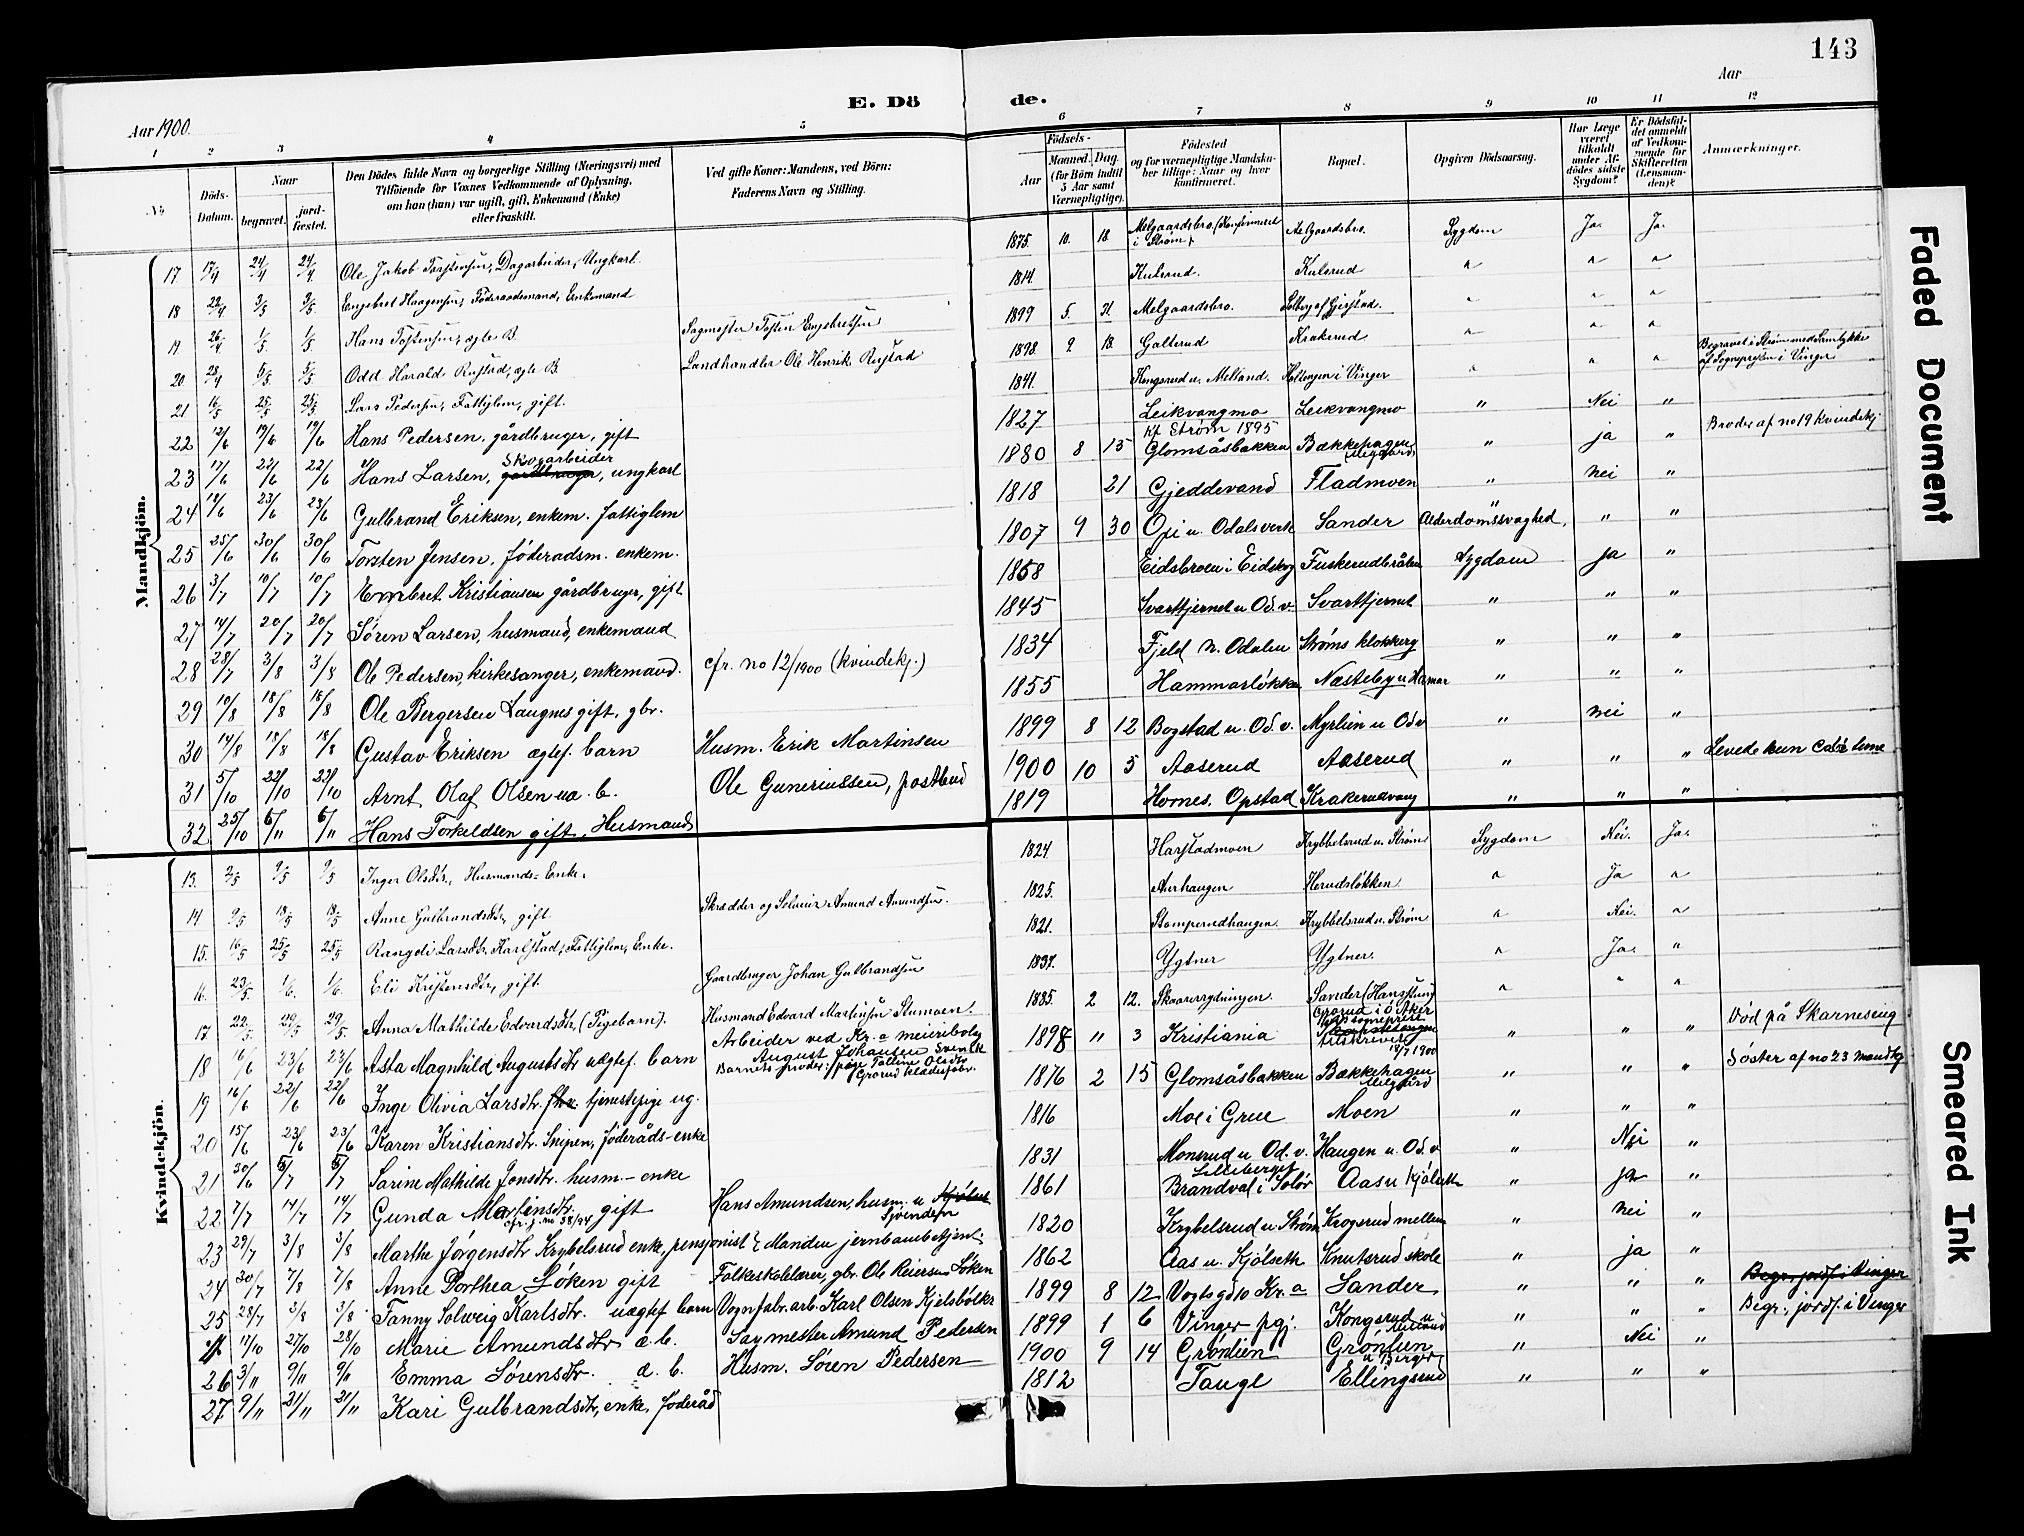 143
Aar 1900.
E. Dö
de.
Aar
1 2 3 4 5 6 7 8 9 10 11 12
No
Döds-Datum.
Naar
begravet.
jord-fæstet.
Den Dödes fulde Navn og borgerlige Stilling (Næringsvei) med
Tilföiende for Voxnes Vedkommende af Oplysning,
om han (hun) var ugift, gift, Enkemand (Enke)
eller fraskilt.
Ved gifte Koner: Mandens, ved Börn:
Faderens Navn og Stilling.
Födsels-
Aar
Maaned. Dag.
(for Börn indtil
5 Aar samt
Værnepligtige).
Födested
og for værnepligtige Mandska-
ber tillige: Naar og hvor
konfirmeret.
Bopæl.
Opgiven Dödsaarsag.
Har Læge
været
tilkaldt
under Af-
dödes sidste
Sygdom?
Er Dödsfal-
det anmeldt
af Vedkom-
mende for
Skifteretten
(Lensman-
den)?
Anmærkninger.
Mandkjön.
17 17/4 24/4 24/4 Ole Jakob Torstensen, Dagarbeider, Ungkarl. 1875. 10. 18. Melgaardsbro. (Konfirmeret i Strøm). Melgaardsbro. Sygdom Ja. Ja.
18 22/4 3/5 3/5 Engebret Haagensen, Føderaadsmand, Enkemand 1814. Kulsrud. Kulsrud " " "
19 26/4 1/5 1/5 Hans Tostensen, ægte B. Sagmester Tosten Engebretsen 1899 5. 31. Melgaardsbro. Solberg af Gjerstad. " " "
20 28/4 6/5 5/5 Odd Harald Rustad, ægte B. Landhandler Ole Henrik Rustad 1898. 9. 18. Galterud Krakerud " " "
21 16/5 25/5 25/5 Lars Pedersen, Fattiglem, gift. 1841. Kongsrud u. Melland. i Vinger " " " Begravet i Strøm med Samtykke af Sognepresten i Vinger
22 12/6 19/6 19/6 Hans Pedersen, gårdbruger, gift 1827 Leikvangmo Leikvangmo " Nei "
23 17/6 22/6 22/6 Hans Larsen, Skogarbeider gårdbruger, ungkarl 1880 8 15 kf Strøm 1895 Glomsåsbakken Bækkehagen Melgård " ja " Broder af no 19 kvindekj.
24 19/6 23/6 23/6 Gulbrand Eriksen, enkem. fattiglem 1818 21 Gjeddevand Fladmoen " nei "
25 25/6 30/6 30/6 Torsten Jensen, føderadsm. enkem. 1807 9 30 Opi u. Odalsverk Sander Alderdomssvaghed, " "
26 3/7 10/7 10/7 Embret Kristiansen gårdbruger, gift 1858 Eidsbroen i Eidskog Fuskerudbråten Sygdom ja "
27 14/7 20/7 20/7 Søren Larsen, husmand, enkemand 1845 Svarttjernet u Od. v. Svarttjernet " " "
28 28/7 3/8 3/8 Ole Pedersen, kirkesanger, enkemand. cfr. no 12/1900 (kvindekj.) 1834 Fjeld N. Odalen Strøms klokkerg " " "
29 10/8 18/8 18/8 Ole Bergersen Laugnes gift, gbr. 1855 Hammarløkken Næsteby u Hamar " " "
30 14/8 18/8 18/8 Gustav Eriksen ægtef. barn Husm. Erik Martinsen 1899 8 12 Bogstad u. Od. v. Myrlien u Od v " nei "
31 5/10 22/10 22/10 Arnt Olaf Olsen ua. b. Ole Guneriussen, postbud 1900 10 5 Aaserud Aaserud " " " Levede kun time
32 25/10 6/11 6/11 Hans Torkildsen gift, Husmand 1819 Hornes. Opstad Krakerudvang " " "
Kvindekjön.
13. 2/5 9/5 9/5 Inger Olsdtr, Husmands-Enke, 1824. Harstadmoen Krybbelsrud u. Strøm Sygdom Nei. Ja.
14 9/5 18/5 18/5 Anne Gulbrandsdtr, gift. Skrædder og Selveier Amund Amundsen. 1825. Aurhaugen Herudsløkken " Ja "
15. 16/5 25/5 25/5 Rangdi Larsdtr. Karlstad, Fattiglem, Enke. 1821. Stomperudhaugen Krybbelsrud u. Strøm " Nei. "
16. 23/5 1/6. 1/6. Eli Kristensdtr, gift. Gaardbruger Johan Gulbrandsen 1837. Ygtner Ygtner. " Ja. "
17 22/5 29/5 29/5 Anna Mathilde Edvardsdtr, (Pigebarn). Husmand Edvard Martinsen Stumoen. 1885 2 12. Skaarerrydningen. Sander (Hansstun) " " "
18 16/6 23/6 23/6 Asta Magnhild Augustsdtr uægtef. barn Arbeider ved Kr.a meieribolag August Johansen Svensk Barnets moder: pige Talline Olsdtr Grorud klædesfabr. 1898 " 3 Kristiania Grorud i Ø Aker tilskrivet 18/7 1900 " " " Død på Skarneseng
19 16/6 22/6 22/6 Inge Olivia Larsdtr. tjenestepige ug. 1876 2 15 Glomsåsbakken Bækkehagen Melgård " " " Søster af no 23 mandkj
20 15/6 23/6 23/6 Karen Kristiansdtr. Snipen, føderåds-enke 1816 Moe i Grue Moen " " "
21 30/6 5/7 5/7 Sarine Mathilde Jonsdtr. husm.-enke 1831 Monsrud u Od. v. Haugen u. Od. v " Nei "
22 7/7 14/7 14/7 Gunda Martinsdtr. gift cfr. j. no 58/94 Hans Amundsen, husm. u Kjølset Sjøendsen 1861 Lilleberget Brandval i Solør Aas u Kjølseth " ja "
23 29/7 3/8 3/8 Marthe Jørgensdtr Krybelsrud enke, pensjonist Manden jernbanebetjent. 1820 Krybelsrud u. Strøm Krogsrud mellem " nei "
24 30/7 7/8 7/8 Anne Dorthea Løken gift Folkeskolelærer, gbr. Ole Reiersen Løken 1862 Aas u. Kjølseth Knutsrud skole " ja "
25 28/7 3/8 3/8 Fanny Solveig Karlsdtr. uægtef barn Vognfabr. arb. Karl Olsen Kjelsbølkr 1899 8 12 Vogtsgd 10 Kr.a Sander " " " Begr. jordf. i Vinger
17/10 27/10 28/10 Marie Amundsdtr æ. b. Sagmester Amund Pedersen 1899 1 6 Vinger pgj. Kongsrud u Melland " " " Begr. jordf. i Vinger
26 3/11 9/11 9/11 Emma Sørensdtr. æ. b. Husm. Søren Pedersen 1900 9 14 Grønlien Grønlien u Berger " Nei "
27 9/11 21/11 21/11 Kari Gulbrandsdtr, enke, føderåd 1812 Tauge Ellingsrud " " "
Faded Document
Smeared Ink